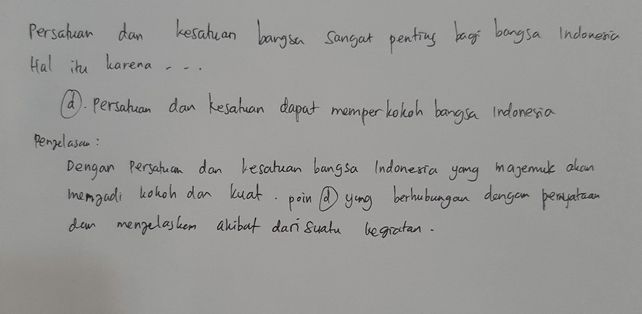 Persatuan dan kesatuan bangsa sangat penting bagi bangsa Indonesia
Hal itu karena - - .
(d). Persatuan dan kesatuan dapat memperkokoh bangsa Indonesia
Penjelasan :
Dengan Persatuan dan kesatuan bangsa Indonesia yang majemuk akan
menjadi kokoh dan kuat . poin (d) yang berhubungan dengan pernyataan
dan menjelaskan akibat dari suatu kegiatan .